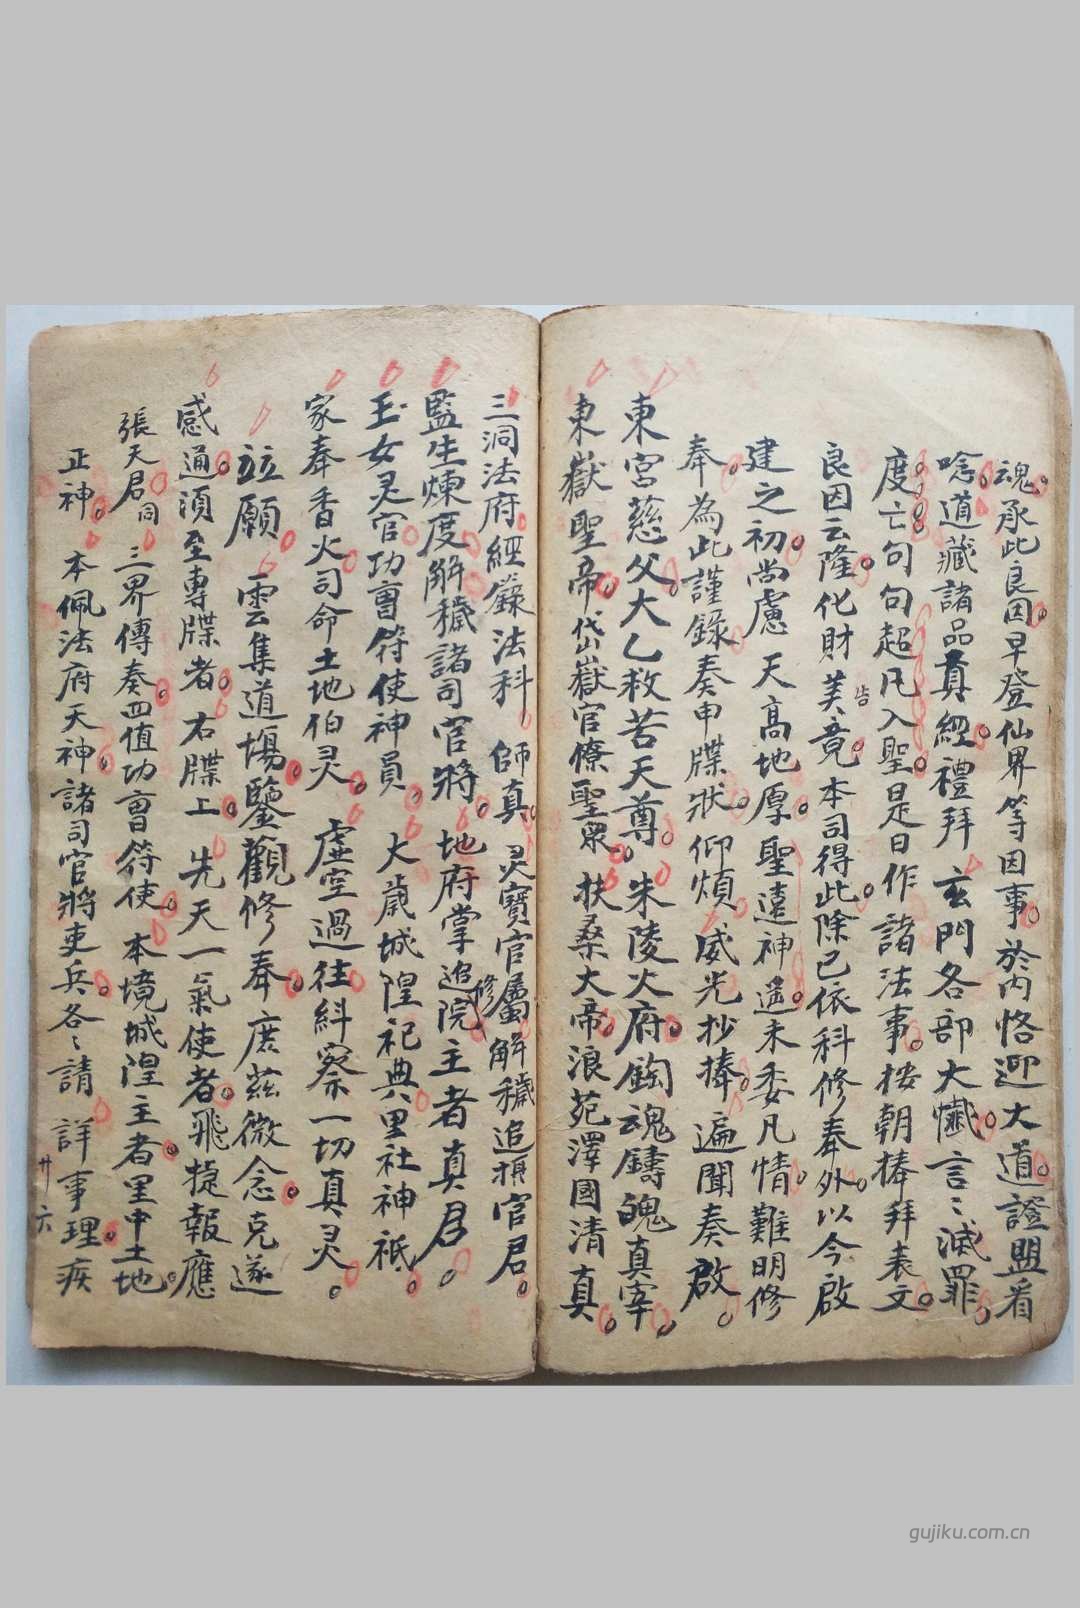 魂承此良因。早登仙界等因事。於內恪迎大道。證盟看
唸。道藏諸品真經。禮拜 玄門各部大懺。言〻滅罪。
度亡句句超凡入聖。是日作諸法事。按朝捧拜表文。
良因云隆。化財告美竟。本司得此。除已依科修奉外。以今啟
建之初。尚慮 天高地厚。聖遠神遙。未委凡情。難明修
奉。為此謹錄奏申牒狀。仰煩 威光抄捧。遍聞奏啟。
東宮慈父大乙救苦天尊。朱陵火府。鍧魂鑄魄真宰。
東嶽聖帝。岱嶽官僚聖眾。扶桑大帝。浪苑澤國清真。
三洞法府經籙法科 師真。灵寶官屬解穢追攝官君。
監生煉度解穢諸司官將。地府掌追修院主者真君。
玉女灵官功曹符使神員 大歲城隍祀典里社神祇。
家奉香火司命土地伯灵。 虛空過往糾察一切真灵。
竝願 雲集道場。鑒觀修奉。庶茲微念。克遂
感通。須至專牒者。右牒上。 先天一氣使者。飛捷報應
張天君。同 三界傳奏。四值功曹符使。 本境城湟主者。里中土地。
正神。 本佩法府天神。諸司官將吏兵。各〻請 詳事理。疾
廿六
gujiku.com.cn